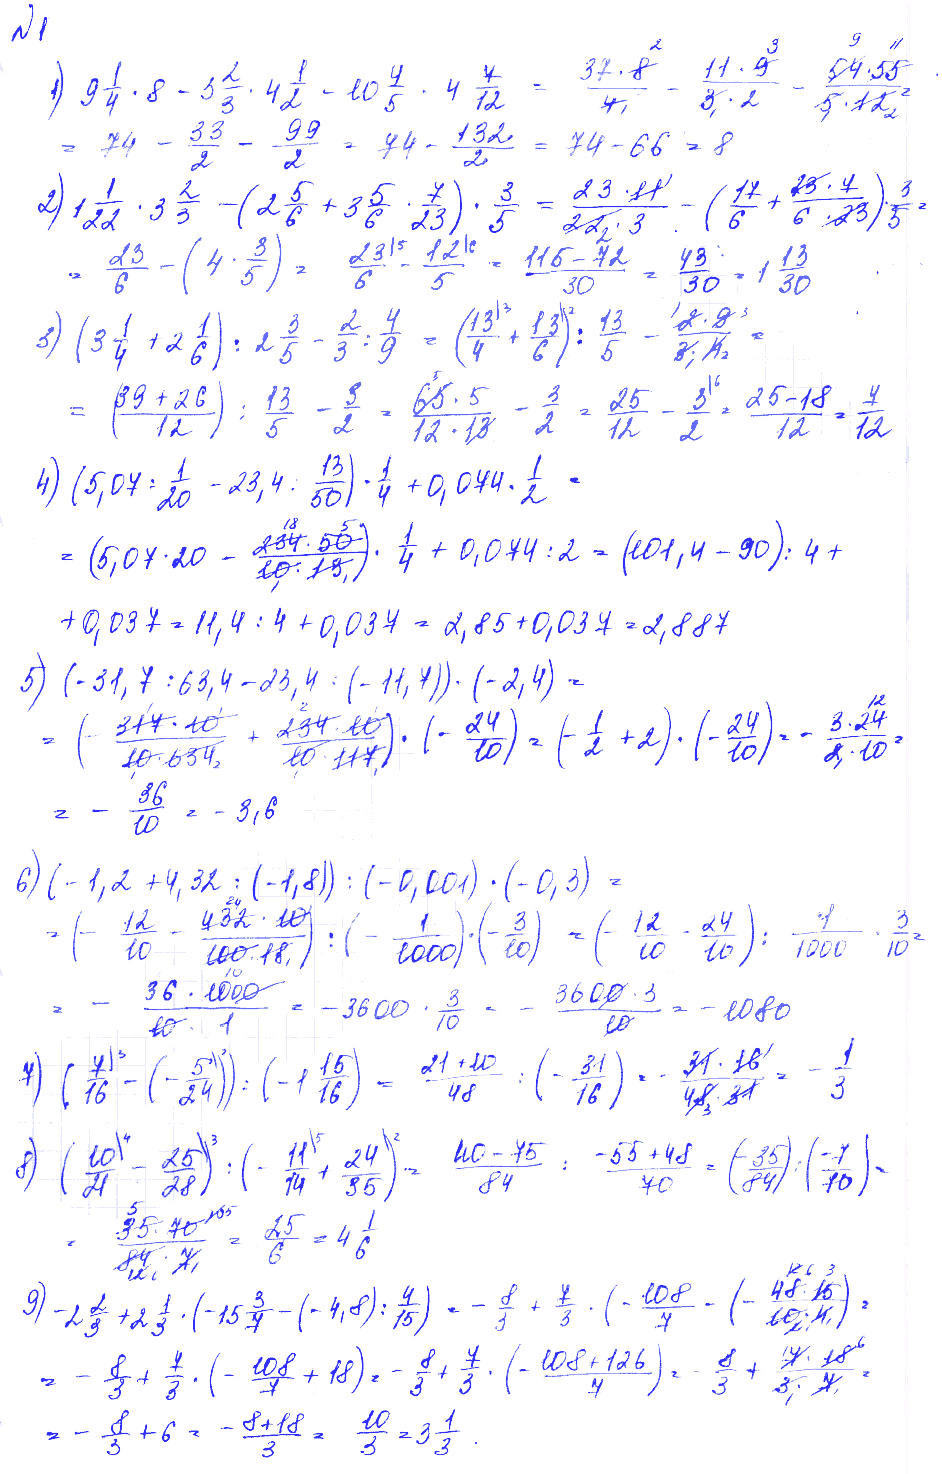 №1
1) 9 1/4 · 8 − 3 2/3 · 4 1/2 − 10 4/5 · 4 7/12 = 37·8/4 − 11·9/3·2 − 54·55/5·12 =
= 74 − 33/2 − 99/2 = 74 − 132/2 = 74 − 66 = 8
2) 1 1/22 · 3 2/3 − (2 5/6 + 3 5/6 · 7/23) · 3/5 = 23·11/22·3 − (17/6 + 23·7/6·23) · 3/5 =
= 23/6 − (4 · 3/5) = 23/6 − 12/5 = 115−72/30 = 43/30 = 1 13/30
3) (3 1/4 + 2 1/6) : 2 3/5 − 2/3 : 4/9 = (13/4 + 13/6) : 13/5 − 2·9/3·4 =
= (39+26/12) : 13/5 − 3/2 = 65·5/12·13 − 3/2 = 25/12 − 3/2 = 25−18/12 = 7/12
4) (5,07 : 1/20 − 23,4 : 13/50) · 1/4 + 0,074 · 1/2 =
= (5,07·20 − 234·50/10·13) · 1/4 + 0,074 : 2 = (101,4 − 90) : 4 +
+ 0,037 = 11,4 : 4 + 0,037 = 2,85 + 0,037 = 2,887
5) (−31,7 : 63,4 − 23,4 : (−11,7)) · (−2,4) =
= (− 317·10/10·634 + 234·10/10·117) · (− 24/10) = (− 1/2 + 2) · (− 24/10) = − 3·24/2·10 =
= − 36/10 = −3,6
6) (−1,2 + 4,32 : (−1,8)) : (−0,001) · (−0,3) =
= (− 12/10 − 432·10/100·18) : (− 1/1000) · (− 3/10) = (− 12/10 − 24/10) : 1/1000 · 3/10 =
= − 36·1000/10·1 = −3600 · 3/10 = − 3600·3/10 = −1080
7) (7/16 − (− 5/24)) : (−1 15/16) = 21+10/48 : (− 31/16) = − 31·16/48·31 = − 1/3
8) (10/21 − 25/28) : (− 11/14 + 24/35) = 40−75/84 : −55+48/70 = (−35/84) : (−7/70) =
= 35·70/84·7 = 25/6 = 4 1/6
9) −2 2/3 + 2 1/3 · (−15 3/7 − (−4,8) : 4/15) = − 8/3 + 7/3 · (− 108/7 − (− 48·15/10·4) =
= − 8/3 + 7/3 · (− 108/7 + 18) = − 8/3 + 7/3 · (−108+126/7) = − 8/3 + 7·18/3·7 =
= − 8/3 + 6 = −8+18/3 = 10/3 = 3 1/3.